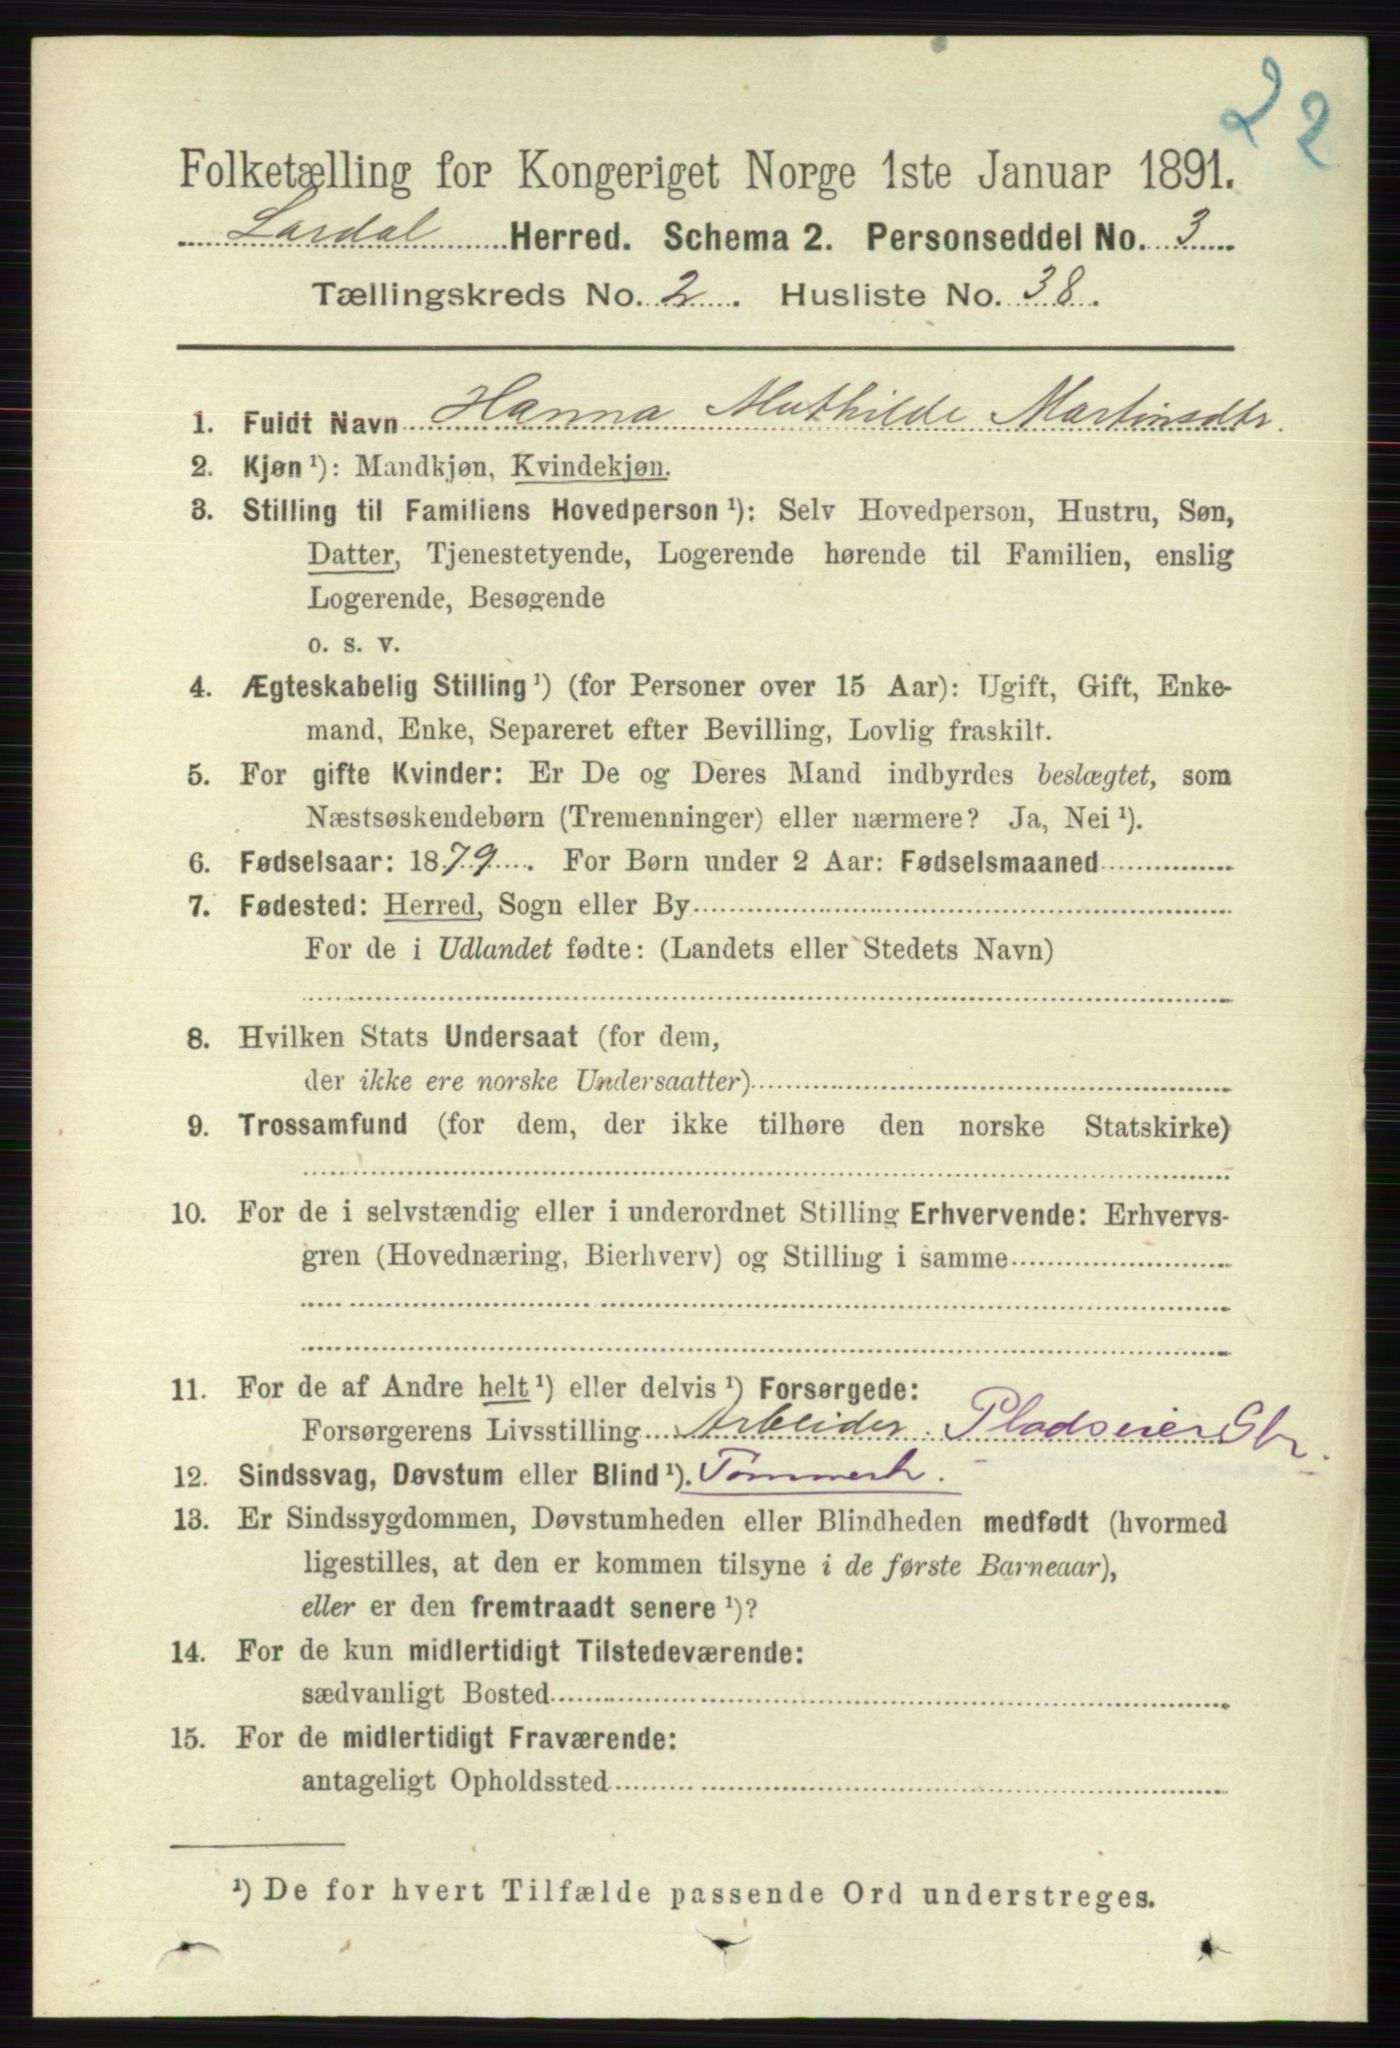 22
Folketælling for Kongeriget Norge 1ste Januar 1891.
Lardal Herred. Schema 2. Personseddel No. 3
Tællingskreds No. 2. Husliste No. 38.
1. Fuldt Navn Hanna Mathilde Martinsdtr.
2. Kjøn ¹): Mandkjøn, Kvindekjøn.
3. Stilling til Familiens Hovedperson ¹): Selv Hovedperson, Hustru, Søn,
Datter, Tjenestetyende, Logerende hørende til Familien, enslig
Logerende, Besøgende
o. s. v.
4. Ægteskabelig Stilling ¹) (for Personer over 15 Aar): Ugift, Gift, Enke-
mand, Enke, Separeret efter Bevilling, Lovlig fraskilt.
5. For gifte Kvinder: Er De og Deres Mand indbyrdes beslægtet, som
Næstsøskendebørn (Tremenninger) eller nærmere? Ja, Nei ¹).
6. Fødselsaar: 1879. For Børn under 2 Aar: Fødselsmaaned
7. Fødested: Herred, Sogn eller By
For de i Udlandet fødte: (Landets eller Stedets Navn)
8. Hvilken Stats Undersaat (for dem,
der ikke ere norske Undersaatter)
9. Trossamfund (for dem, der ikke tilhøre den norske Statskirke)
10. For de i selvstændig eller i underordnet Stilling Erhvervende: Erhvervs-
gren (Hovednæring, Bierhverv) og Stilling i samme
11. For de af Andre helt ¹) eller delvis ¹) Forsørgede:
Forsørgerens Livsstilling Arbeider. Pladseier Gbr.
12. Sindssvag, Døvstum eller Blind ¹). Tømmerh.
13. Er Sindssygdommen, Døvstumheden eller Blindheden medfødt (hvormed
ligestilles, at den er kommen tilsyne i de første Barneaar),
eller er den fremtraadt senere ¹)?
14. For de kun midlertidigt Tilstedeværende:
sædvanligt Bosted
15. For de midlertidigt Fraværende:
antageligt Opholdssted
¹) De for hvert Tilfælde passende Ord understreges.